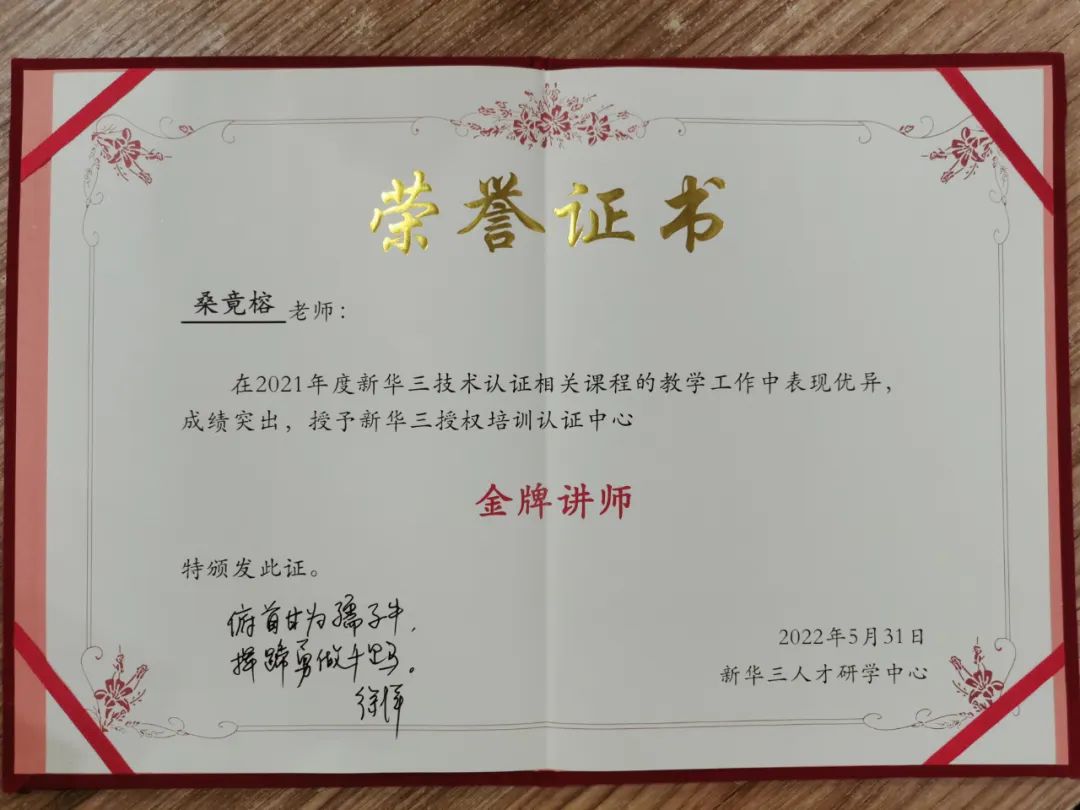 荣誉证书
桑竟榕 老师:
在2021年度新华三技术认证相关课程的教学工作中表现优异,
成绩突出,授予新华三授权培训认证中心
金牌讲师
特颁发此证。
俯首甘为孺子牛,
挥蹄勇做千里马。
2022年5月31日
新华三人才研学中心